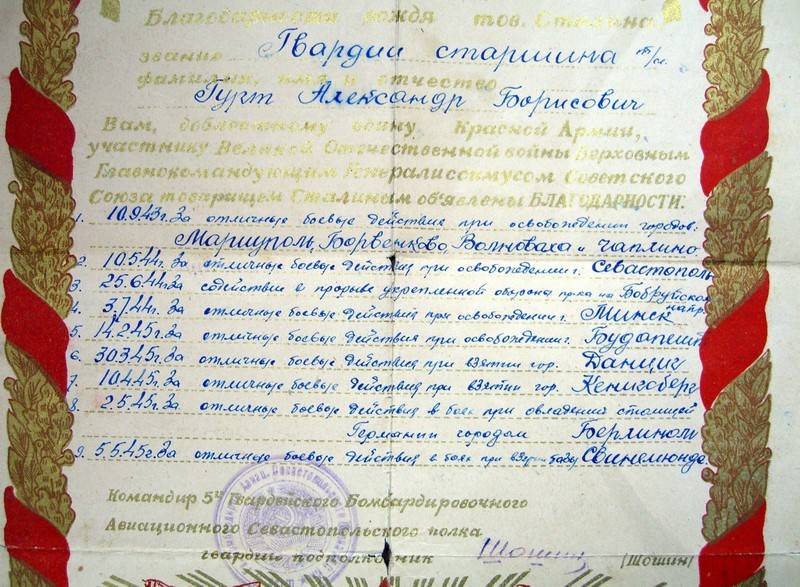 Благодарности вождя тов. Сталина
звание Гвардии старшина т/сл.
фамилия, имя и отчество
Гурт Александр Борисович
Вам, доблестному воину Красной Армии,
участнику Великой Отечественной войны Верховным
Главнокомандующим Генералиссимусом Советского
Союза товарищем Сталиным объявлены БЛАГОДАРНОСТИ:
1. 10.9.43г. За отличные боевые действия при освобождении городов:
Мариуполь, Борвенково, Волноваха и Чаплино
2. 10.5.44г. За отличные боевые действия при освобождении г. Севастополь
3. 25.6.44г. За содействие в прорыве укрепленной обороны пр-ка на Бобруйском напр.
4. 3.7.44г. За отличные боевые действия при освобождении г. Минск
5. 14.2.45г. За отличные боевые действия при освобождении г. Будапешт
6. 30.3.45г. За отличные боевые действия при взятии гор. Данциг
7. 10.4.45г. За отличные боевые действия при взятии гор. Кенигсберг
8. 2.5.45г. За отличные боевые действия в боях при овладении столицей
Германии городом Берлином
9. 5.5.45г. За отличные боевые действия в боях при взятии базы Свинемюнде.
Командир 5й Гвардейского Бомбардировочного
Авиационного Севастопольского полка
гвардии подполковник Шошин (Шошин)